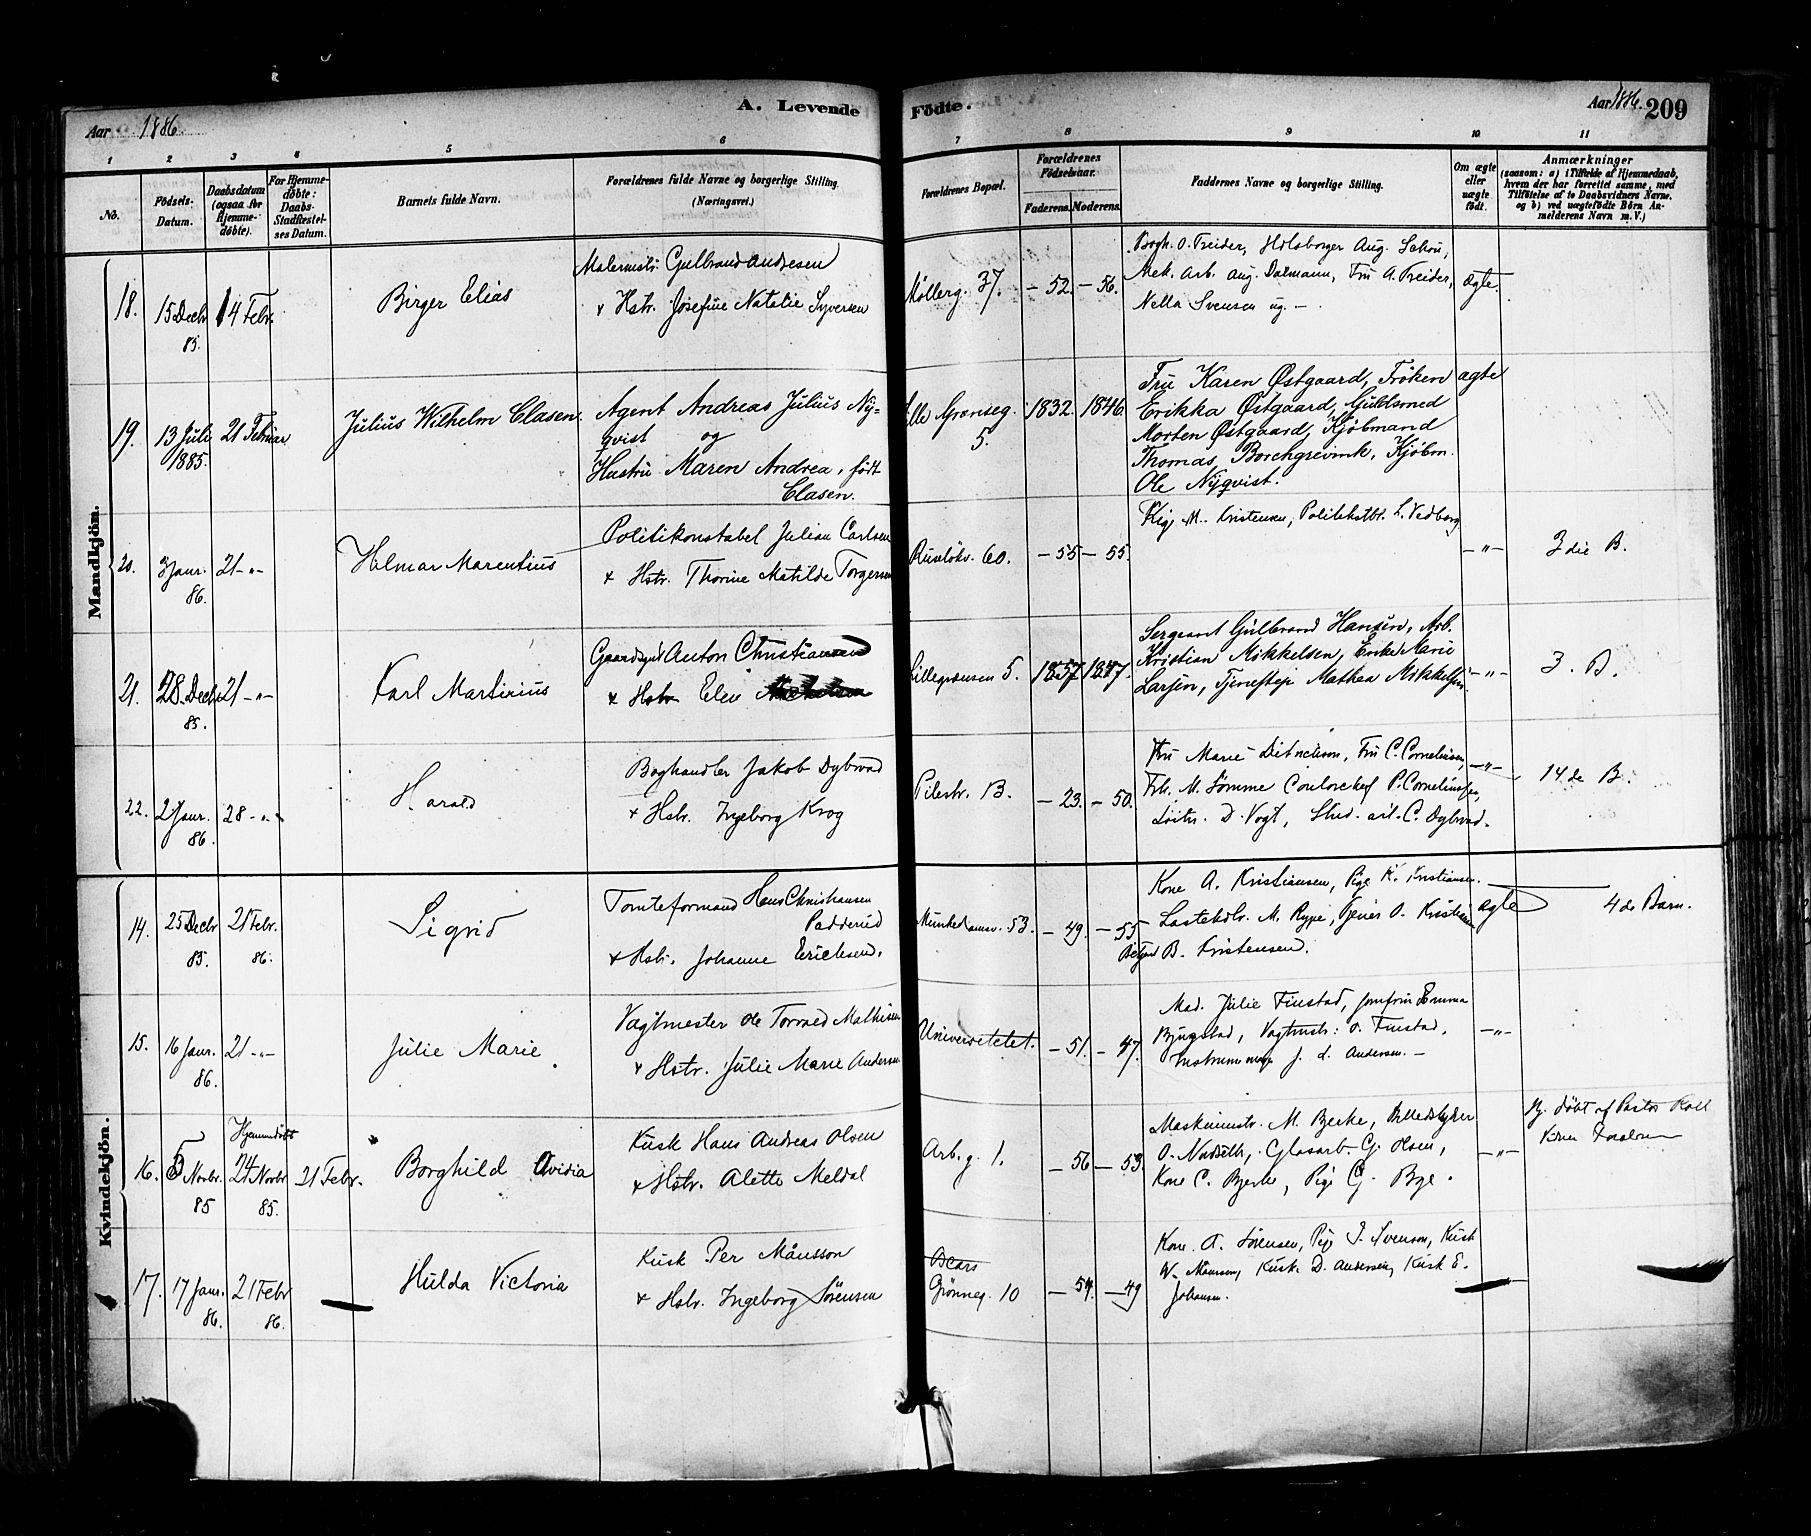 A. Levende Födte.
Aar 1886.
Aar 1886. 209
1 2 3 4 5 6 7 8 9 10 11
No.
Födsels-Datum.
Daabsdatum (ogsaa for Hjemme-döbte).
For Hjemme-döbte: Daabs-Stadfæstel-ses Datum.
Barnets fulde Navn.
Forældrenes fulde Navne og borgerlige Stilling. (Næringsvei.)
Forældrenes Bopæl.
Forældrenes Födselsaar.
Faderens. Moderens.
Faddernes Navne og borgerlige Stilling.
Om ægte eller uægte födt.
Anmærkninger
(saasom: a) i Tilfælde af Hjemmedaab, hvem der har forrettet samme, med Tilföielse af to Daabsvidners Navne, og b) ved uægtefödte Börn An-melderens Navn m.V.)
Mandkjön.
18. 15 Decbr 85. 14 Febr. Birger Elias
Malermstr. Gulbrand Andresen
+ Hstr. Josefine Natalie Syversen
Møllerg. 37. - 52. - 56.
Bogh. O. Treider, Aug. Schou,
Mek. Arb. Aug. Dalmann, Fru A. Treider,
Nella Svensen ug. -
ægte.
19. 13 Juli 1885. 21 Februar Julius Wilhelm Clasen.
Agent Andreas Julius Ny=
qvist og
Hustru Maren Andrea, født
Clasen.
Lille Grænseg. 5. 1832. 1846.
Fru Karen Østgaard, Frøken
Erikka Østgaard, Guldsmed
Morten Østgaard, Kjøbmand
Thomas Borchgrevink, Kjøbm.
Ole Nyqvist.
ægte
20. 3 Janr. 86. 21 -"- Hilmar Marentius
Politikonstabel Julian Carlsen
+ Hstr. Thorine Matilde Torgersen
Ruseløkv. 60. - 55 - 55.
Pige M. Kristensen, Politikstbl. L. Vedborg
-"- 3die B.
21. 28. Decbr 85. 21 -"- Karl Martinius
Gaardsgut Anton Christiansen
+ Hstr Elen
Lillegrænsen 5. 1857. 1847.
Sergeant Gulbrand Hansen, Arb.
Kristian Mikkelsen, Enke Marie
Larsen, Tjenestep. Mathea Mikkelsen.
-"- 3. B.
22. 2 Janr. 86. 28 -"- Harald
Boghandler Jakob Dybwad
+ Hstr. Ingeborg Krog
Pilestr. B. - 23. - 50.
Fru Marie Ditrichson, Fru C. Cornelinsen,
Frk. M. Sømme Contorchef P. Cornelinsen,
Løitn. D. Vogt, Stud. art. C. Dybwad.
-"- 14.de B.
Kvindekjön.
14. 25 Decbr 85. 21 Febr. 86. Sigrid
Tomteformand Hans Christiansen
Padderud
+ Hstr. Johanne Ericksen.
Munkedamsv. 53. - 49. - 55.
Kone A. Kristiansen, Pige K. Kristiansen.
M. Rype, O. Kristiansen
B. Kristensen.
ægte 4de Barn.
15. 16 Janr. 86. 21 -"- Julie Marie.
Vagtmester Ole Torvald Mathisen
+ Hstr. Julie Marie Andersen
Universitetet. - 51. - 47.
Mad. Julie Finstad, Jomfru Emma
Bjugstad, Vagtmstr: O. Finstad,
Instrummager J. L. Andersen. -
-"-
16. 5 Novbr. 85 Hjemmedøbt 24 Novbr 85. 21 Febr. Borghild Ovidia
Kusk Hans Andreas Olsen
+ Hstr. Alette Meldal
Arb. g. 1. - 56 - 53.
Maskinmstr. M. Bjerke, Billedskjærer
O. Nordseth, Glasarb. G. Olsen,
Kone C. Bjerke, Pige G. Bye.
-"-
Hj. døbt af Pastor Roll
17. 17 Janr. 86. 21 Febr 86. Hulda Victoria
Kusk Per Månsson
+ Hstr. Ingeborg Sörensen
Oscars
Grønneg. 10 - 54. - 49
Kone A. Sørensen, Pige J. Svenson, Kusk
N. Månsson, Kusk D. Andersen, Kusk E.
Johansen.